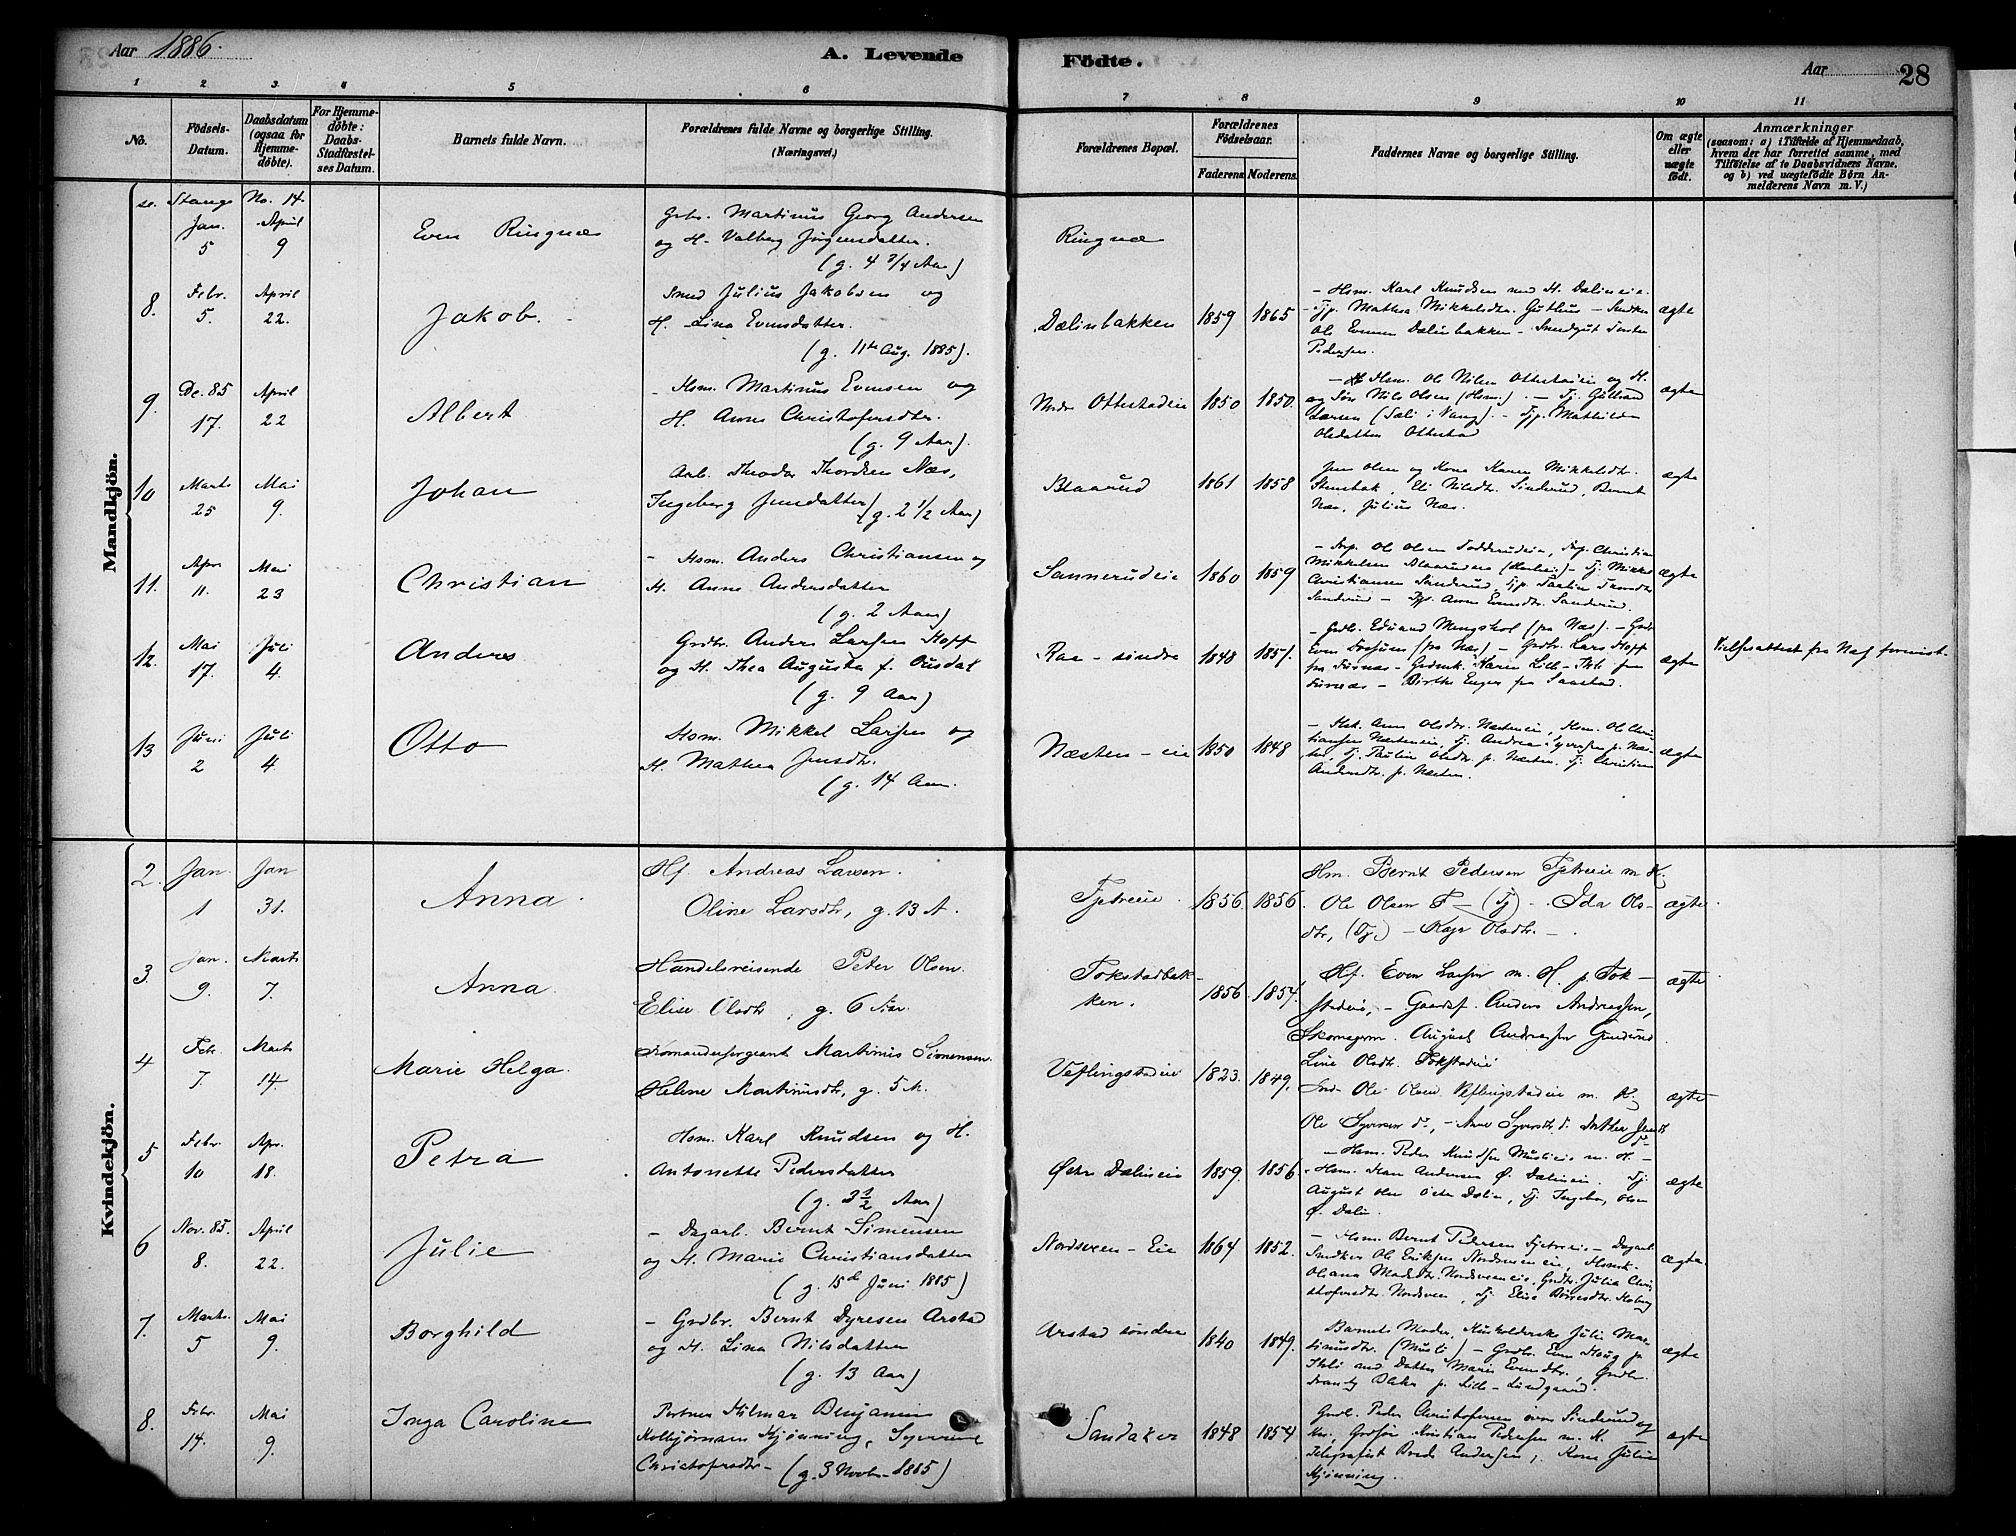 Aar 1886.
A. Levende
Födte.
Aar
28
1 2 3 4 5 6 7 8 9 10 11
No.
Födsels-
Datum.
Daabsdatum
(ogsaa for
Hjemme-
döbte).
For Hjemme-
döbte:
Daabs-
Stadfæstel-
ses Datum.
Barnets fulde Navn.
Forældrenes fulde Navne og borgerlige Stilling.
(Næringsvei.)
Forældrenes Bopæl.
Forældrenes
Födselsaar.
Faderens.
Moderens.
Faddernes Navne og borgerlige Stilling.
Om ægte
eller
uægte
födt.
Anmærkninger
(saasom: a) i Tilfælde af Hjemmedaab,
hvem der har forrettet samme, med
Tilföielse af to Daabsvidners Navne,
og b) ved uægtefödte Börn An-
melderens Navn m. V.)
Mandkjön.
se. Stange No. 14.
Jan.
5
April
9
Even Ringnæs
Grbr. Martinus Georg Andersen
og H. Valberg Jørgensdatter.
(g. 4 3/4 Aar)
Ringnæs
8.
Febr.
5.
April
22.
Jakob.
Smed Julius Jakobsen og
H. Lina Evensdatter.
(g. 11te Aug. 1885).
Dælinbakken
1859
1865
- Hsm. Karl Knudsen med H. Dælineie.
Tjp. Mathea Mikkelsdtr. Guthus - Snedker
Ol. Evensen Dælinbakken - Smedgut Torsten
Pedersen.
ægte
9.
De. 85
17.
April
22
Albert
- Hsm. Martinus Evensen og
H. Anne Christofersdtr.
(g. 9 Aar).
Nedr Ottestadeie
1850
1850.
- Hsm. Ole Nilsen Ottestadeie og H.
og Søn Nils Olsen (Hsm.). - Tj. Gulbrand
Larsen (Sæli i Vang). - Tjp. Mathilde
Olsdatter Ottestad
ægte
10
Marts
25
Mai
9.
Johan
Arb. Theodor Thordsen Næs,
Ingeborg Jensdatter (g. 2 1/2 Aar)
Blaarud
1861
1858
Jens Olsen og Kone Karen Mikkelsdtr.
Stenbak, Eli Nilsdtr. Sinderud, Bernt
Næs, Julius Næs.
ægte
11.
Apr.
11.
Mai
23
Christian
- Hsm. Anders Christiansen og
H. Anne Andersdatter
(g. 2 Aar)
Sannerudeie
1860
1859
- Tjp. Anne Evensdtr. Sanderud.
ægte
12.
Mai
17.
Juli
4.
Anders
Grdbr. Anders Larsen Hoff
og H. Thea Augusta f. Ousdal
(g. 9 Aar)
Raa - søndre
1848
1851.
- Grdb. Eduard Mengshol (fra Næs). - Grdb.
Even (fra Næs) - Grdbr. Lars Hoff
fra Furnæs - Grdmk. Karen Lille-
Furnæs - Birthe Enger fra Saastad.
ægte
Vielsesattest fra Næs forevist.
13
Juni
2
Juli
4.
Otto
Hsm. Mikkel Larsen og
H. Mathea Jensdtr.
(g. 14 Aar.
Næsten - eie
1850
1848
- Hsk. Anne Olsdtr. Næsteneie, Hsm. Ole Chris-
tiansen Næsteneie, Tj. Andreas Syversen p. Næs-
ten, Tj. Pauline Olsdtr. p. Næsten, Tj. Christian
Andersdtr. p. Næsten.
ægte
Kvindekjön.
2.
Jan.
1
Jan
31.
Anna.
Hf. Andreas Larsen.
Oline Larsdtr, g. 13 A.
Tjetreeie.
1856.
1856.
Hm. Bernt Pedersen Tjetreeie m K.
Ole Olsen T - (Tj) - Ida Ols-
dtr, (Tj.) - Kaja Olsdtr. -
ægte.
3.
Jan.
9.
Marts
7.
Anna.
Handelsreisende Peter Olsen.
Elise Olsdtr, g. 6 Aar.
Tokstadbak-
ken.
1856.
1854.
Hf. Even Larsen m. H. p. Tok-
stadeie, - Gaardsf. Anders Andreassen,
Skomagerm. August Andreassen Gunderud
Line Olsdtr. Tokstadeie
ægte
4
Febr.
7.
Marts
14.
Marie Helga.
Kommandersergeant Martinus Simensen.
Helene Martinusdtr, g. 5 A.
Veflingstadeie
1823.
1849.
Ind. Ole Olsen Veflingstadeie m. K.
Ole Syversen d., - Anne Syversdtr. d. Dorthea Jensdtr
d -
ægte
5
Febr.
10
Apr.
18.
Petra
Hsm. Karl Knudsen og H.
Antonette Pedersdatter
(g. 3 1/2 Aar)
Østr Dælineie
1859.
1856.
- Hsm. Peder Knudsen Muslieie m. H -
- Hsm. Hans Andersen Ø. Dælineie. Tj.
August Olsen Østre Dælin, Tj. Ingeborg Olsen
Ø. Dælin.
ægte
6
Nov. 85.
8.
April
22.
Julie
- Dagarb. Bernt Simensen
og H. Marie Christiansdatter
(g. 15de Juni 1885)
Nordsveen - Eie
1864
1852.
- Hsm. Bernt Pedersen Tjetreeie - Dagarb.
Snedker Ole Eriksen Nordsveeneie, Hsmk.
Oleana Madsdtr. Nordsveeneie, Grdtr. Julia Chri-
stofersdtr. Nordsveen, Tj. Elise Børresdtr. Koberg
ægte.
7.
Marts.
5
Mai
9.
Borghild
- Grdbr. Bernt Dyresen Arstad
og H. Lina Nilsdatter
(g. 13 Aar)
Arstad søndre
1840
1849.
Barnets Moder, Husholderske Julie Mar-
tinusdtr. (Musli) - Grdbr. Even Houg p.
Skeli med Datter Marie Evensdtr., Grdbr.
Frantz Dæhn p. Lille-Lundgaard.
ægte
8.
Febr.
14.
Mai
9.
Inga Caroline
Portner Hilmar Benjamin
Kolbjørnsen Hjønning, Syverine
Christofersdtr - (g. 3 Novbr. 1885)
Sandaker
1848
1854
Grdb. Peder Christofersen øvre Sinderud og
Kn., Grdsøn Kristian Pedersen m. K.
Telegrafist Brede Andersen, Kone Julie
Hjønning.
ægte